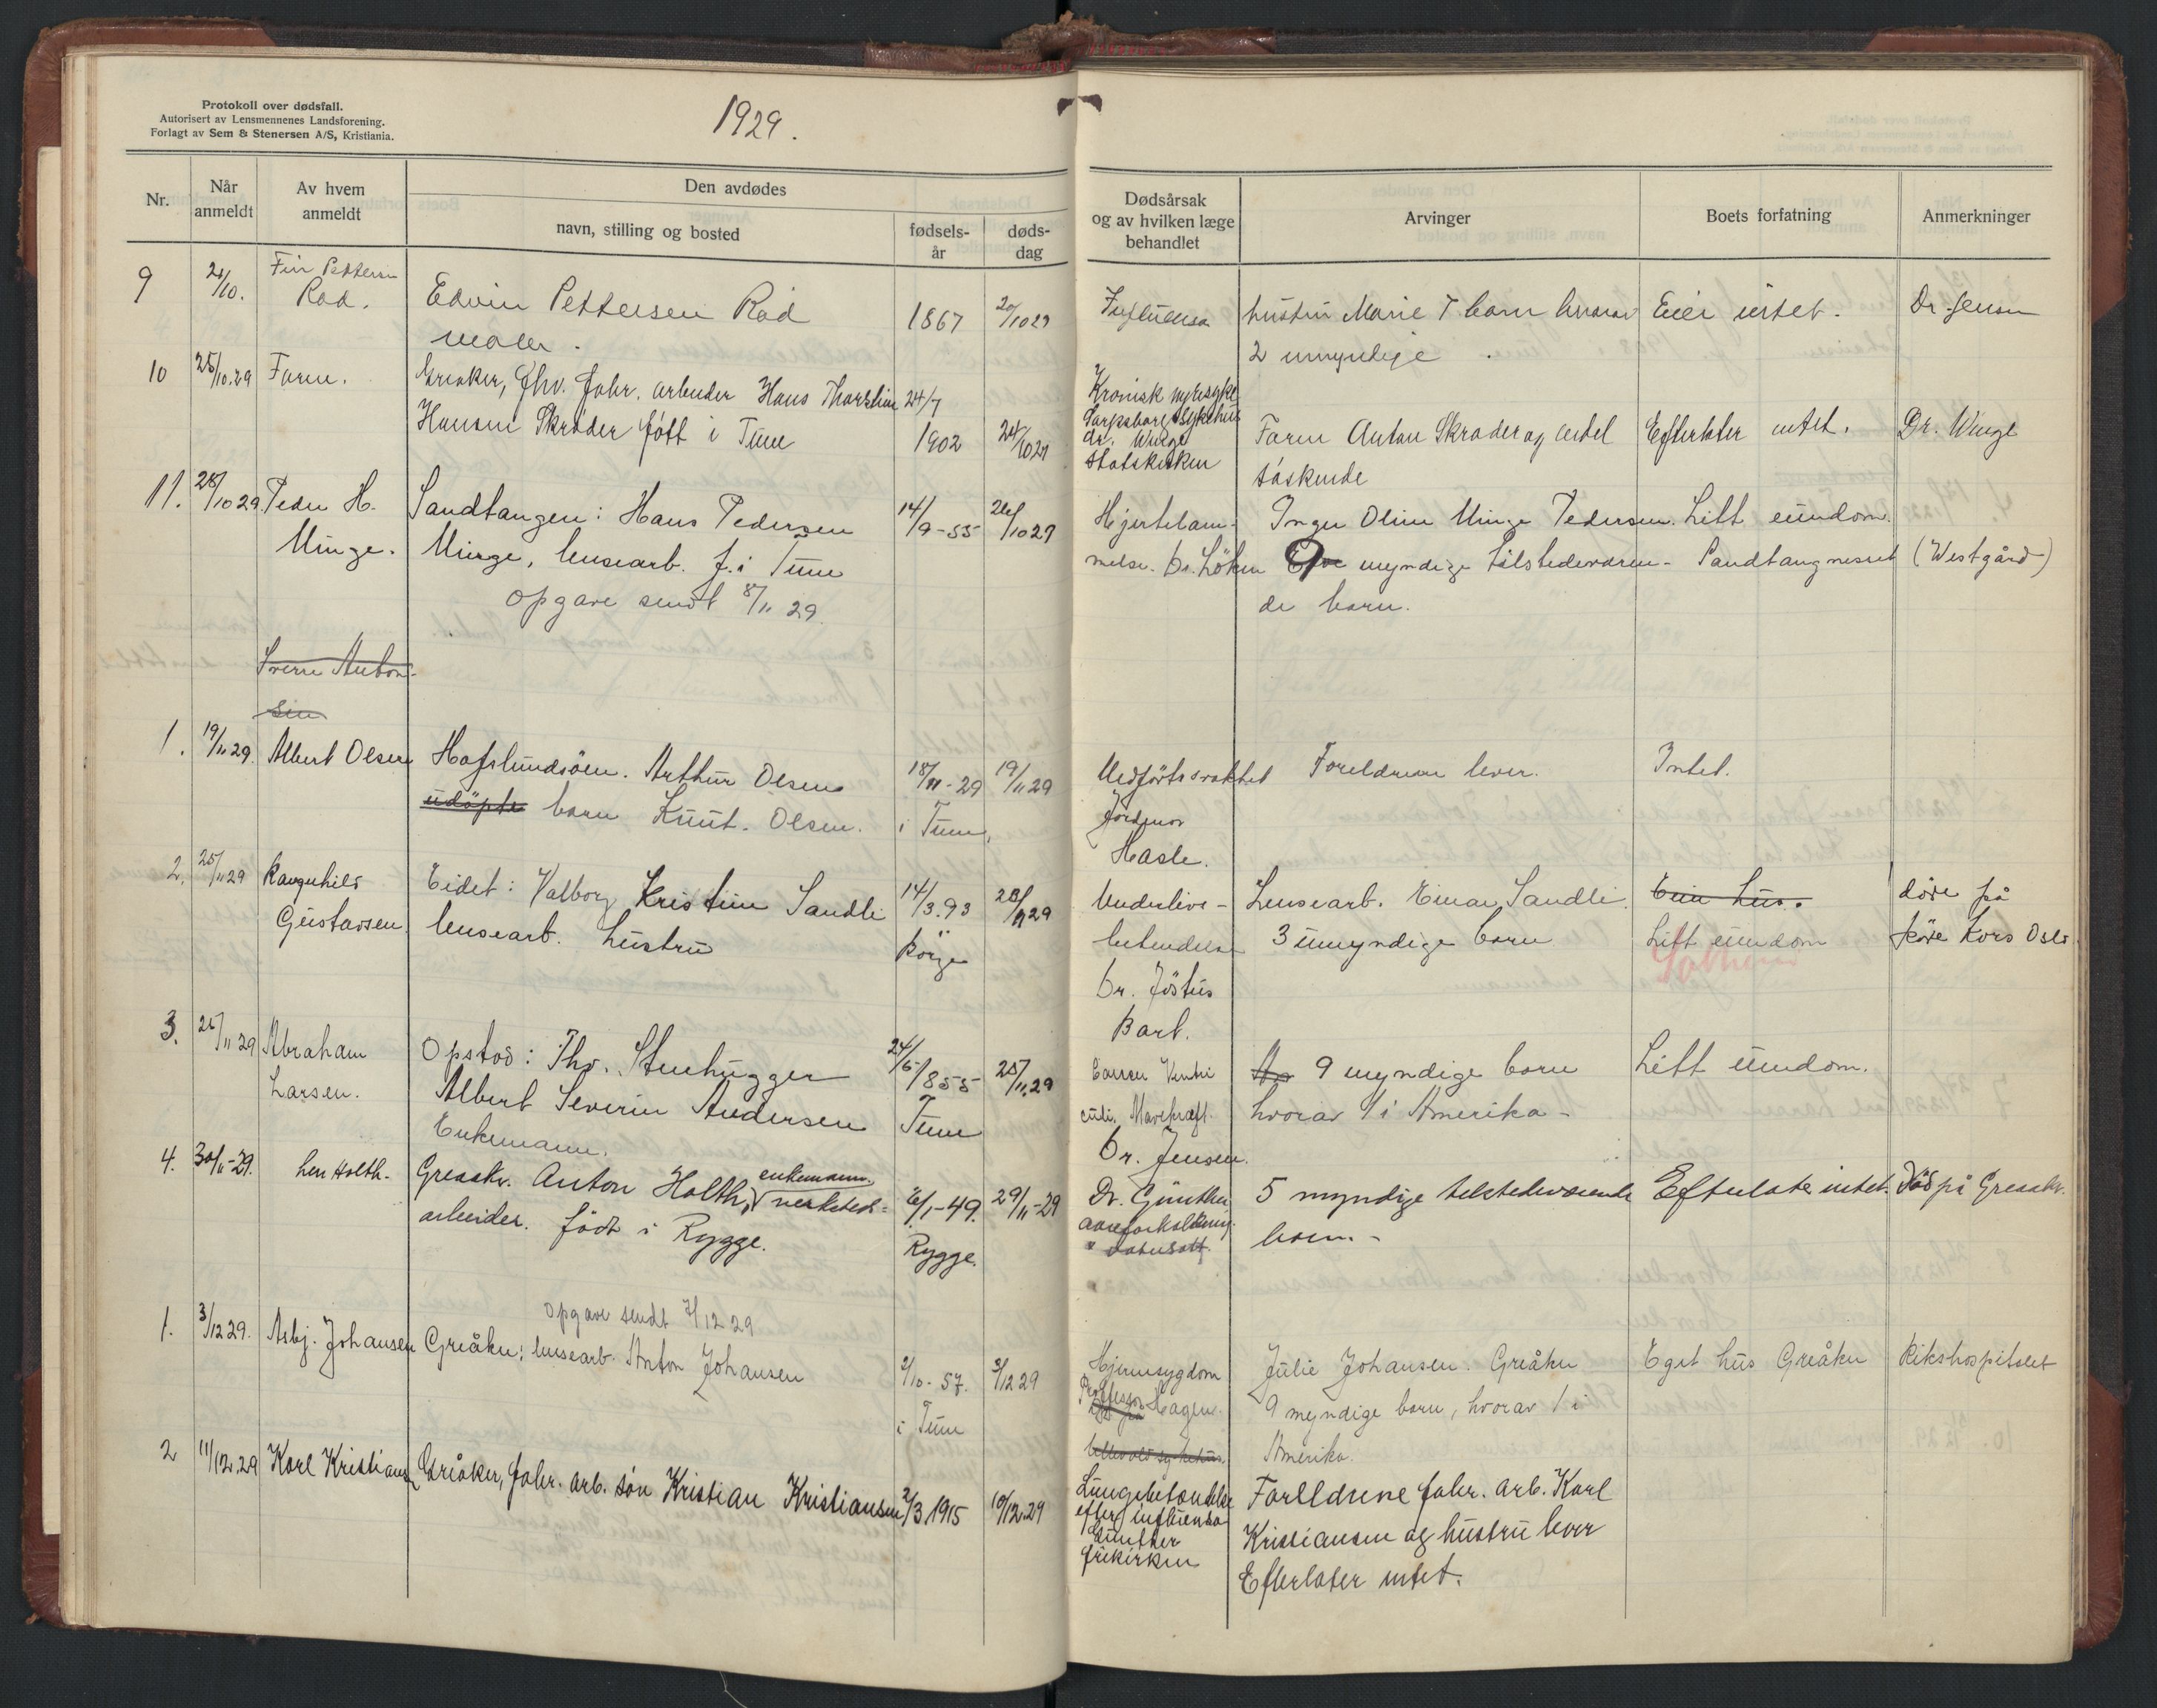 Protokoll over dødsfall.
Autorisert av Lensmennenes Landsforening.
Forlagt av Sem & Stenersen A/S, Kristiania.
1929.
Nr.
Når anmeldt
Av hvem anmeldt
Den avdødes
navn, stilling og bosted
fødsels-
år
døds-
dag
Dødsårsak
og av hvilken læge
behandlet
Arvinger
Boets forfatning
Anmerkninger
9 21/10. Finn Pettersen
Rød.
Edvin Pettersen Rød
maler.
1867 20/10 29
Influensa
hustru Marie 7 barn hvorav
2 umyndige.
Eier intet.
Dr. Jensen
10 25/10.29 Faren.
Greaker, Ghv. fabr. arbeider Hans Thorstein
Hansen Skrøder født i Tune
24/7
1902 24/10 29
Kronisk nyresyke
Sarpsborg sykehus
dr. Winge
Statskirken
Faren Anton Skrøder og endel
søskende
Efterlater intet.
Dr. Winge
11. 28/10 29. Peder H.
Minge.
Sandtangen: Hans Pedersen
Minge, lensearb. f. i Tune
opgave sendt 8/11 29.
14/9-55 26/10 29
Hjertelam-
melse. Dr. Löken
Inger Oline Minge Pedersen.
9 myndige tilstedeværen-
de barn.
Litt eiendom.
Sandtangneset (Westgård)
Sverre Anton-
sen
1. 19/11 29. Albert Olsen
Hafslundsöen. Arthur Olsens
udöpte barn Knut. Olsen.
18/11-29 19/11 29
i Tune,
Medförts svakhet
Jordmor
Hasle.
Foreldrene lever.
Intet.
2. 25/11 29 Ragnhild
Gustavsen.
Eidet: Valborg Kristine Sandli
lensearb. hustru
14/3.93 23/11 29
Borge
Underlivs-
betendelse
Dr. Jöstus
Lensearb. Einar Sandli.
3 umyndige barn
Eier hus.
Litt eiendom
döde på
Röde Kors Oslo.
3. 25/11 29 Abraham
Larsen.
Opstad: Fhv. Stenhugger
Albert Severin Andersen
Enkemann.
24/5 1855 25/11.29
Tune
Barb.
Mavekræft.
Dr. Jensen.
9 myndige barn
hvorav 1 i Amerika -
Litt eiendom.
4. 30/11-29. Holth.
Greaaker. Anton Holth, enkemann. verksteds-
arbeider. født i Rygge.
6/1-49. 29/11-29
Rygge.
Dr. Günther
aareforkalkning
5 myndige tilstedeværende
barn. -
Efterlater intet.
Död på Greaaker.
opgave sendt 7/12 29
1. 3/12 29. Asbj. Johansen
Greåker: lensearb. Anton Johansen
2/10-57. 3/12 29
i Tune
Hjernesygdom
Professor Hagen.
Julie Johansen. Greåker
9 myndige barn, hvorav 1 i
Amerika.
Eget hus Greåker
Rikshospitalet
2 11/12.29 Karl Kristiansen
Greåker, fabr. arb. søn Kristian Kristiansen
2/3.1915 10/12.29
Lungebetændelse
efter influensa
Günther
frikirken
Forelldrene fabr. arb. Karl
Kristiansen og hustru lever
Efterlater intet.